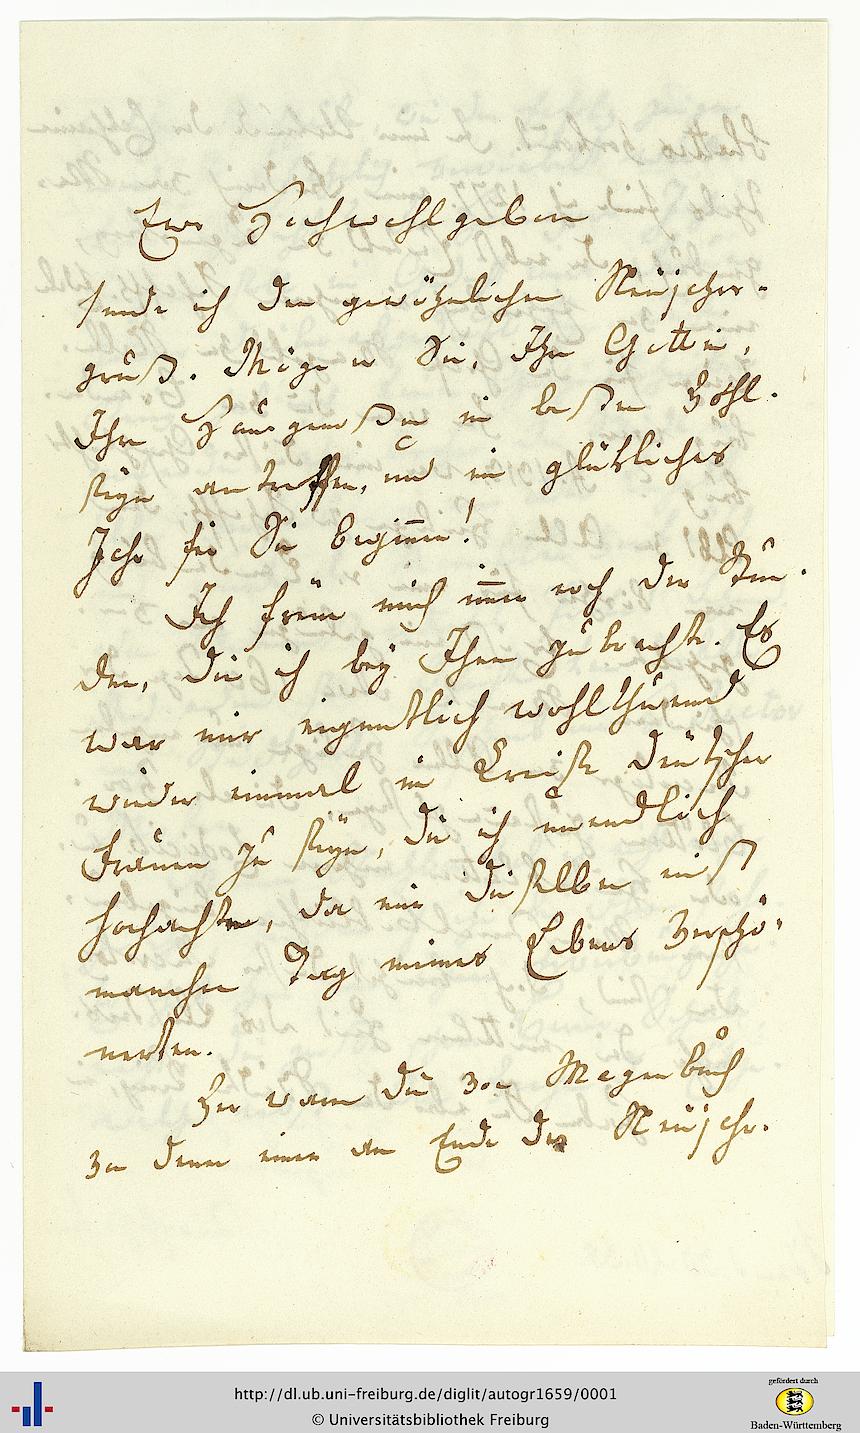 Euer Hochwohlgeboren
sende ich den gewöhnlichen Neujahrs-
gruß. Möge er Sie, Ihre Gattin,
Ihre Hausgenoßen in besten Wohl-
seyn antreffen, und ein glükliches
Jahr für Sie beginnen!
Ich freue mich immer noch der Stun-
den, die ich bey Ihnen zubrachte. Es
war mir eigentlich wohlthuend
wieder einmal im Kreise deutscher
Frauen zu seyn, die ich unendlich
hochachte, da mir dieselben einst
manchen Tag meines Lebens verschö-
nerten.
Hier waren die von Magenbuch
von denen einer am Ende des Neujahr-
http://dl.ub.uni-freiburg.de/diglit/autogr1659/0001
© Universitätsbibliothek Freiburg
gefördert durch
Baden-Württemberg